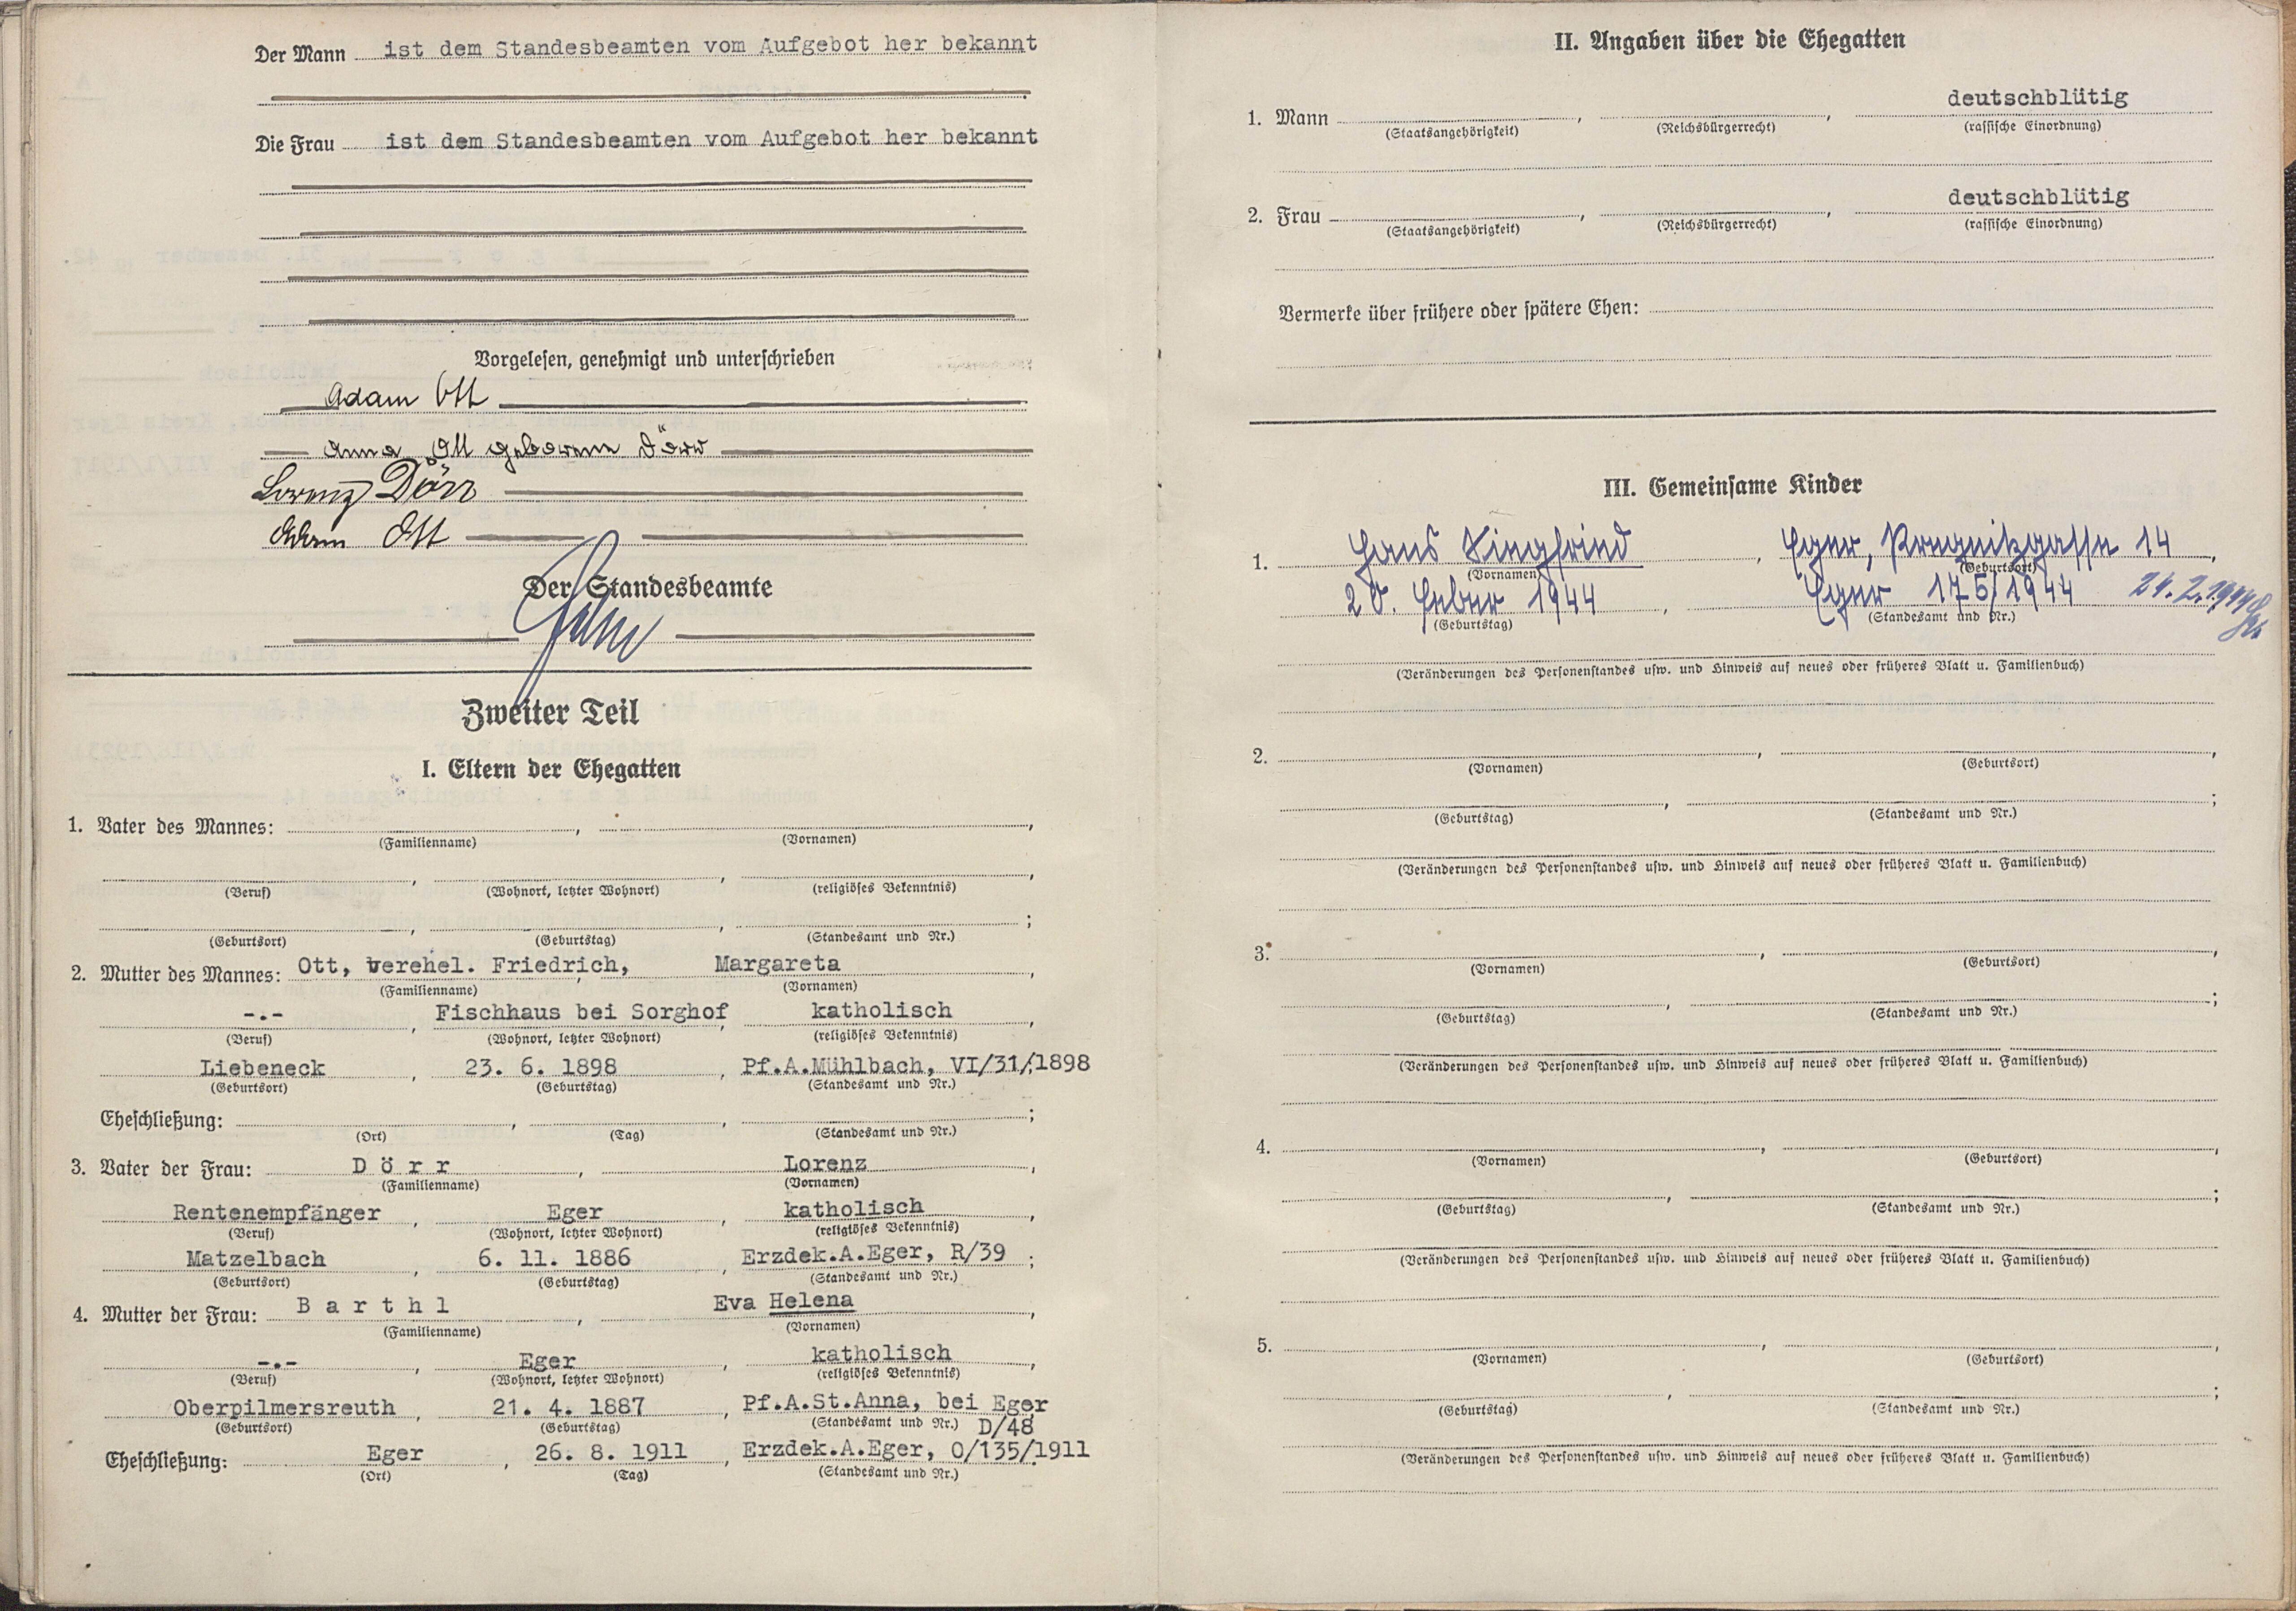 Der Mann ist dem Standesbeamten vom Aufgebot her bekannt
Die Frau ist dem Standesbeamten vom Aufgebot her bekannt
Vorgelesen, genehmigt und unterschrieben
Adam Ott
Anna Ott geborene Dörr
Lorenz Dörr
Adam Ott
Der Standesbeamte
Zweiter Teil
I. Eltern der Ehegatten
1. Vater des Mannes: , ,
(Familienname) (Vornamen)
, , ,
(Beruf) (Wohnort, letzter Wohnort) (religiöses Bekenntnis)
, , ;
(Geburtsort) (Geburtstag) (Standesamt und Nr.)
2. Mutter des Mannes: Ott, verehel. Friedrich, Margareta ,
(Familienname) (Vornamen)
-.- , Fischhaus bei Sorghof katholisch ,
(Beruf) (Wohnort, letzter Wohnort) (religiöses Bekenntnis)
Liebeneck , 23. 6. 1898 , Pf.A.Mühlbach, VI/31/1898
(Geburtsort) (Geburtstag) (Standesamt und Nr.)
Eheschließung: , , ;
(Ort) (Tag) (Standesamt und Nr.)
3. Vater der Frau: Dörr , Lorenz ,
(Familienname) (Vornamen)
Rentenempfänger , Eger , katholisch ,
(Beruf) (Wohnort, letzter Wohnort) (religiöses Bekenntnis)
Matzelbach , 6. 11. 1886 , Erzdek.A.Eger, R/39 ;
(Geburtsort) (Geburtstag) (Standesamt und Nr.)
4. Mutter der Frau: Barthl , Eva Helena ,
(Familienname) (Vornamen)
-.- , Eger , katholisch ,
(Beruf) (Wohnort, letzter Wohnort) (religiöses Bekenntnis)
Oberpilmersreuth , 21. 4. 1887 , Pf.A.St.Anna, bei Eger
(Geburtsort) (Geburtstag) (Standesamt und Nr.) D/48
Eheschließung: Eger , 26. 8. 1911 , Erzdek.A.Eger, O/135/1911
(Ort) (Tag) (Standesamt und Nr.)
II. Angaben über die Ehegatten
1. Mann , , deutschblütig
(Staatsangehörigkeit) (Reichsbürgerrecht) (rassische Einordnung)
2. Frau , , deutschblütig
(Staatsangehörigkeit) (Reichsbürgerrecht) (rassische Einordnung)
Vermerke über frühere oder spätere Ehen:
III. Gemeinsame Kinder
1. Hans Siegfried , Eger, Pregnitzgasse 14 ,
(Vornamen) (Geburtsort)
20. Feber 1944 , Eger 175/1944 24.2.1944
(Geburtstag) (Standesamt und Nr.)
(Veränderungen des Personenstandes usw. und Hinweis auf neues oder früheres Blatt u. Familienbuch)
2. , ,
(Vornamen) (Geburtsort)
, ;
(Geburtstag) (Standesamt und Nr.)
(Veränderungen des Personenstandes usw. und Hinweis auf neues oder früheres Blatt u. Familienbuch)
3. , ,
(Vornamen) (Geburtsort)
, ;
(Geburtstag) (Standesamt und Nr.)
(Veränderungen des Personenstandes usw. und Hinweis auf neues oder früheres Blatt u. Familienbuch)
4. , ,
(Vornamen) (Geburtsort)
, ;
(Geburtstag) (Standesamt und Nr.)
(Veränderungen des Personenstandes usw. und Hinweis auf neues oder früheres Blatt u. Familienbuch)
5. , ,
(Vornamen) (Geburtsort)
, ;
(Geburtstag) (Standesamt und Nr.)
(Veränderungen des Personenstandes usw. und Hinweis auf neues oder früheres Blatt u. Familienbuch)